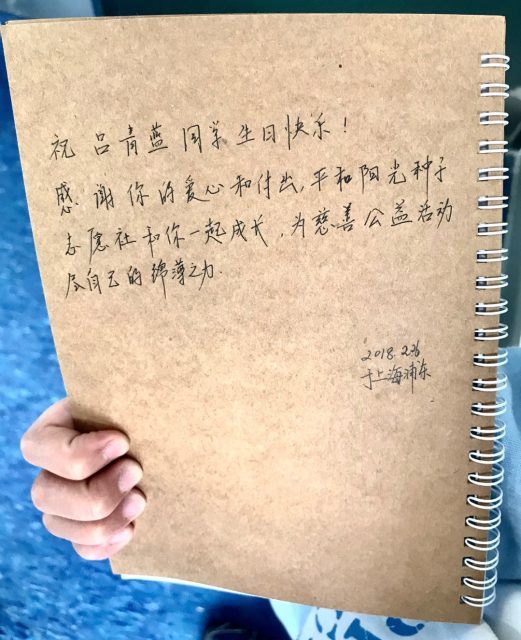 祝吕青蓝同学生日快乐!
感谢你的爱心和付出,平和阳光种子
志愿社和你一起成长,为慈善公益活动
尽自己的绵薄之力.
2018.2.26
于上海浦东